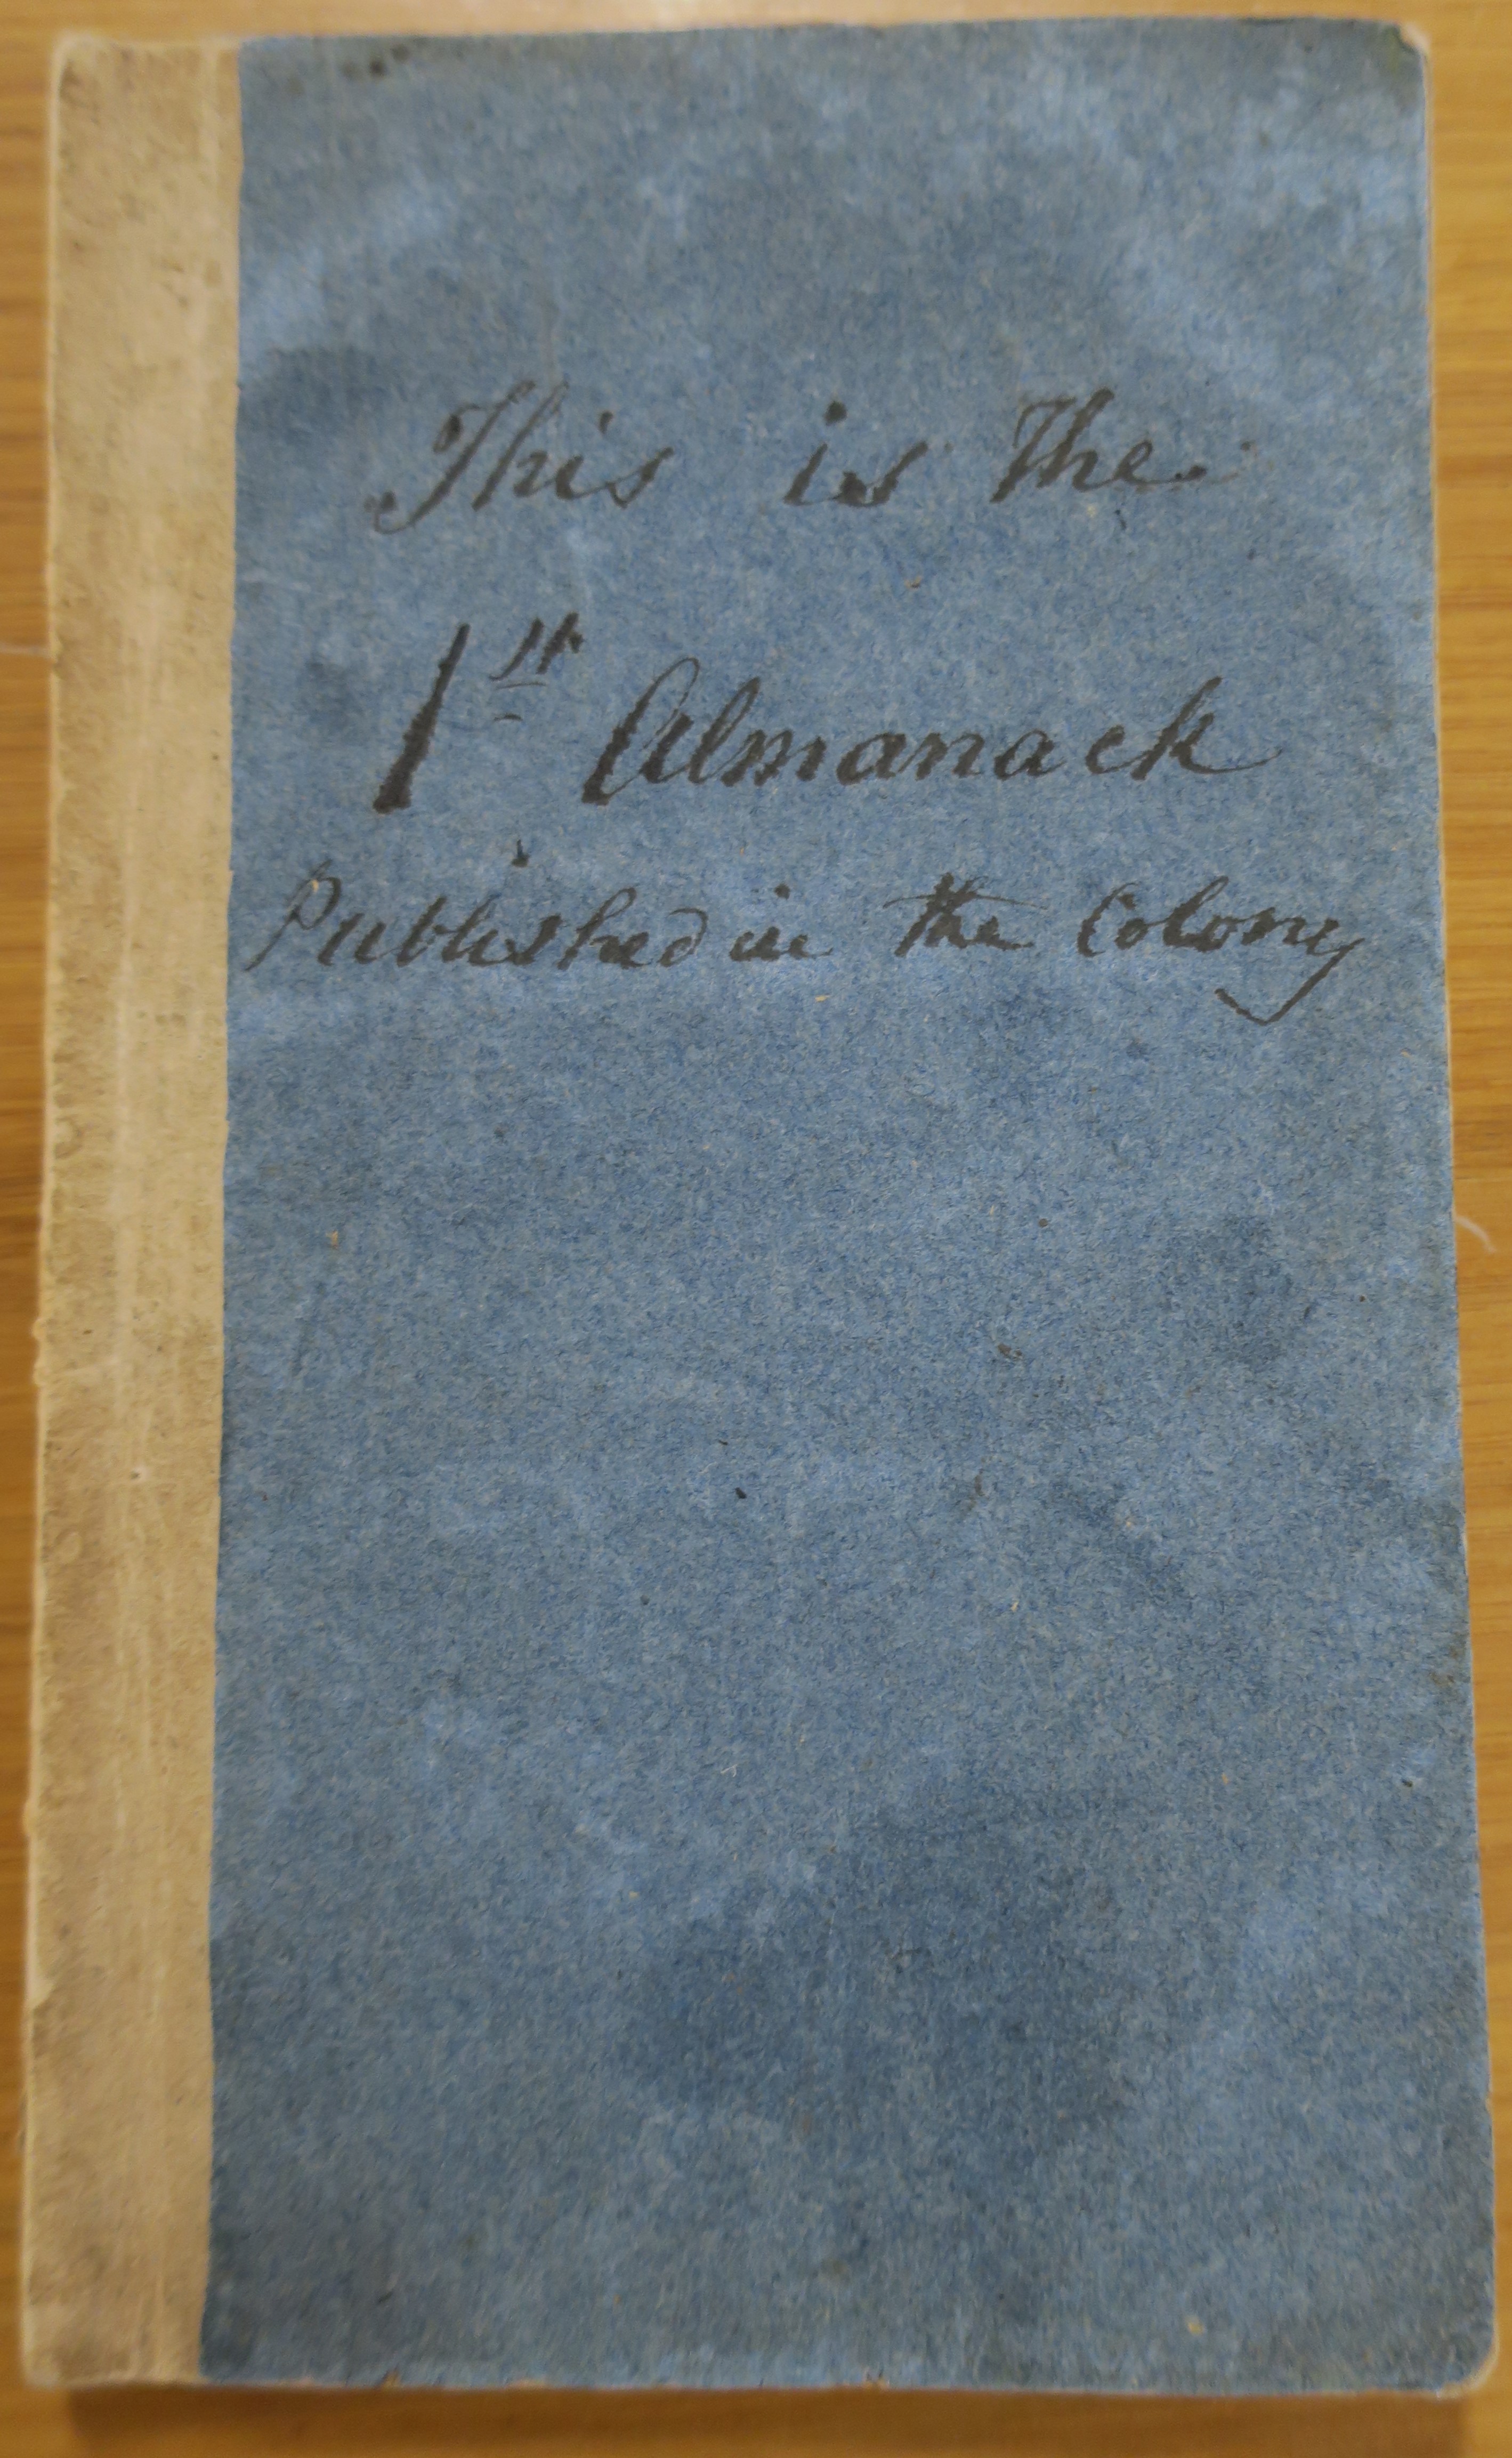 This is The
1st Almanack
Published in the Colony